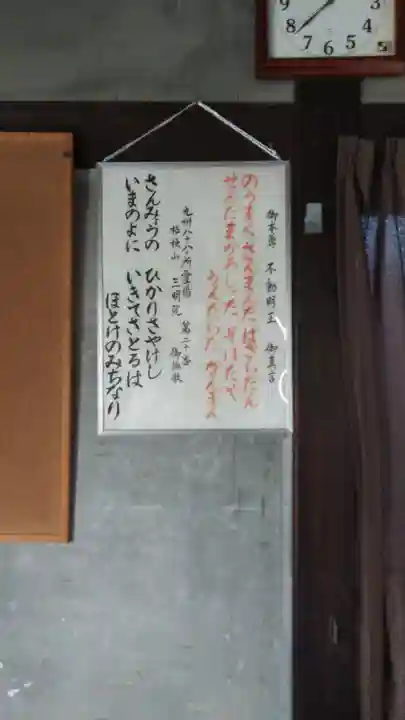 御本尊 不動明王 御真言
のうまく さんまんだ ばざらだん
せんだ まかろしゃだ そはたや
うんたらた かんまん
九州八十八ヶ所霊場 第二十番
桔梗山 三明院 御詠歌
さんみょうの ひかりさやけし
いまのよに いきてさとるは
ほとけのみちなり
8
7
6
5
4
3